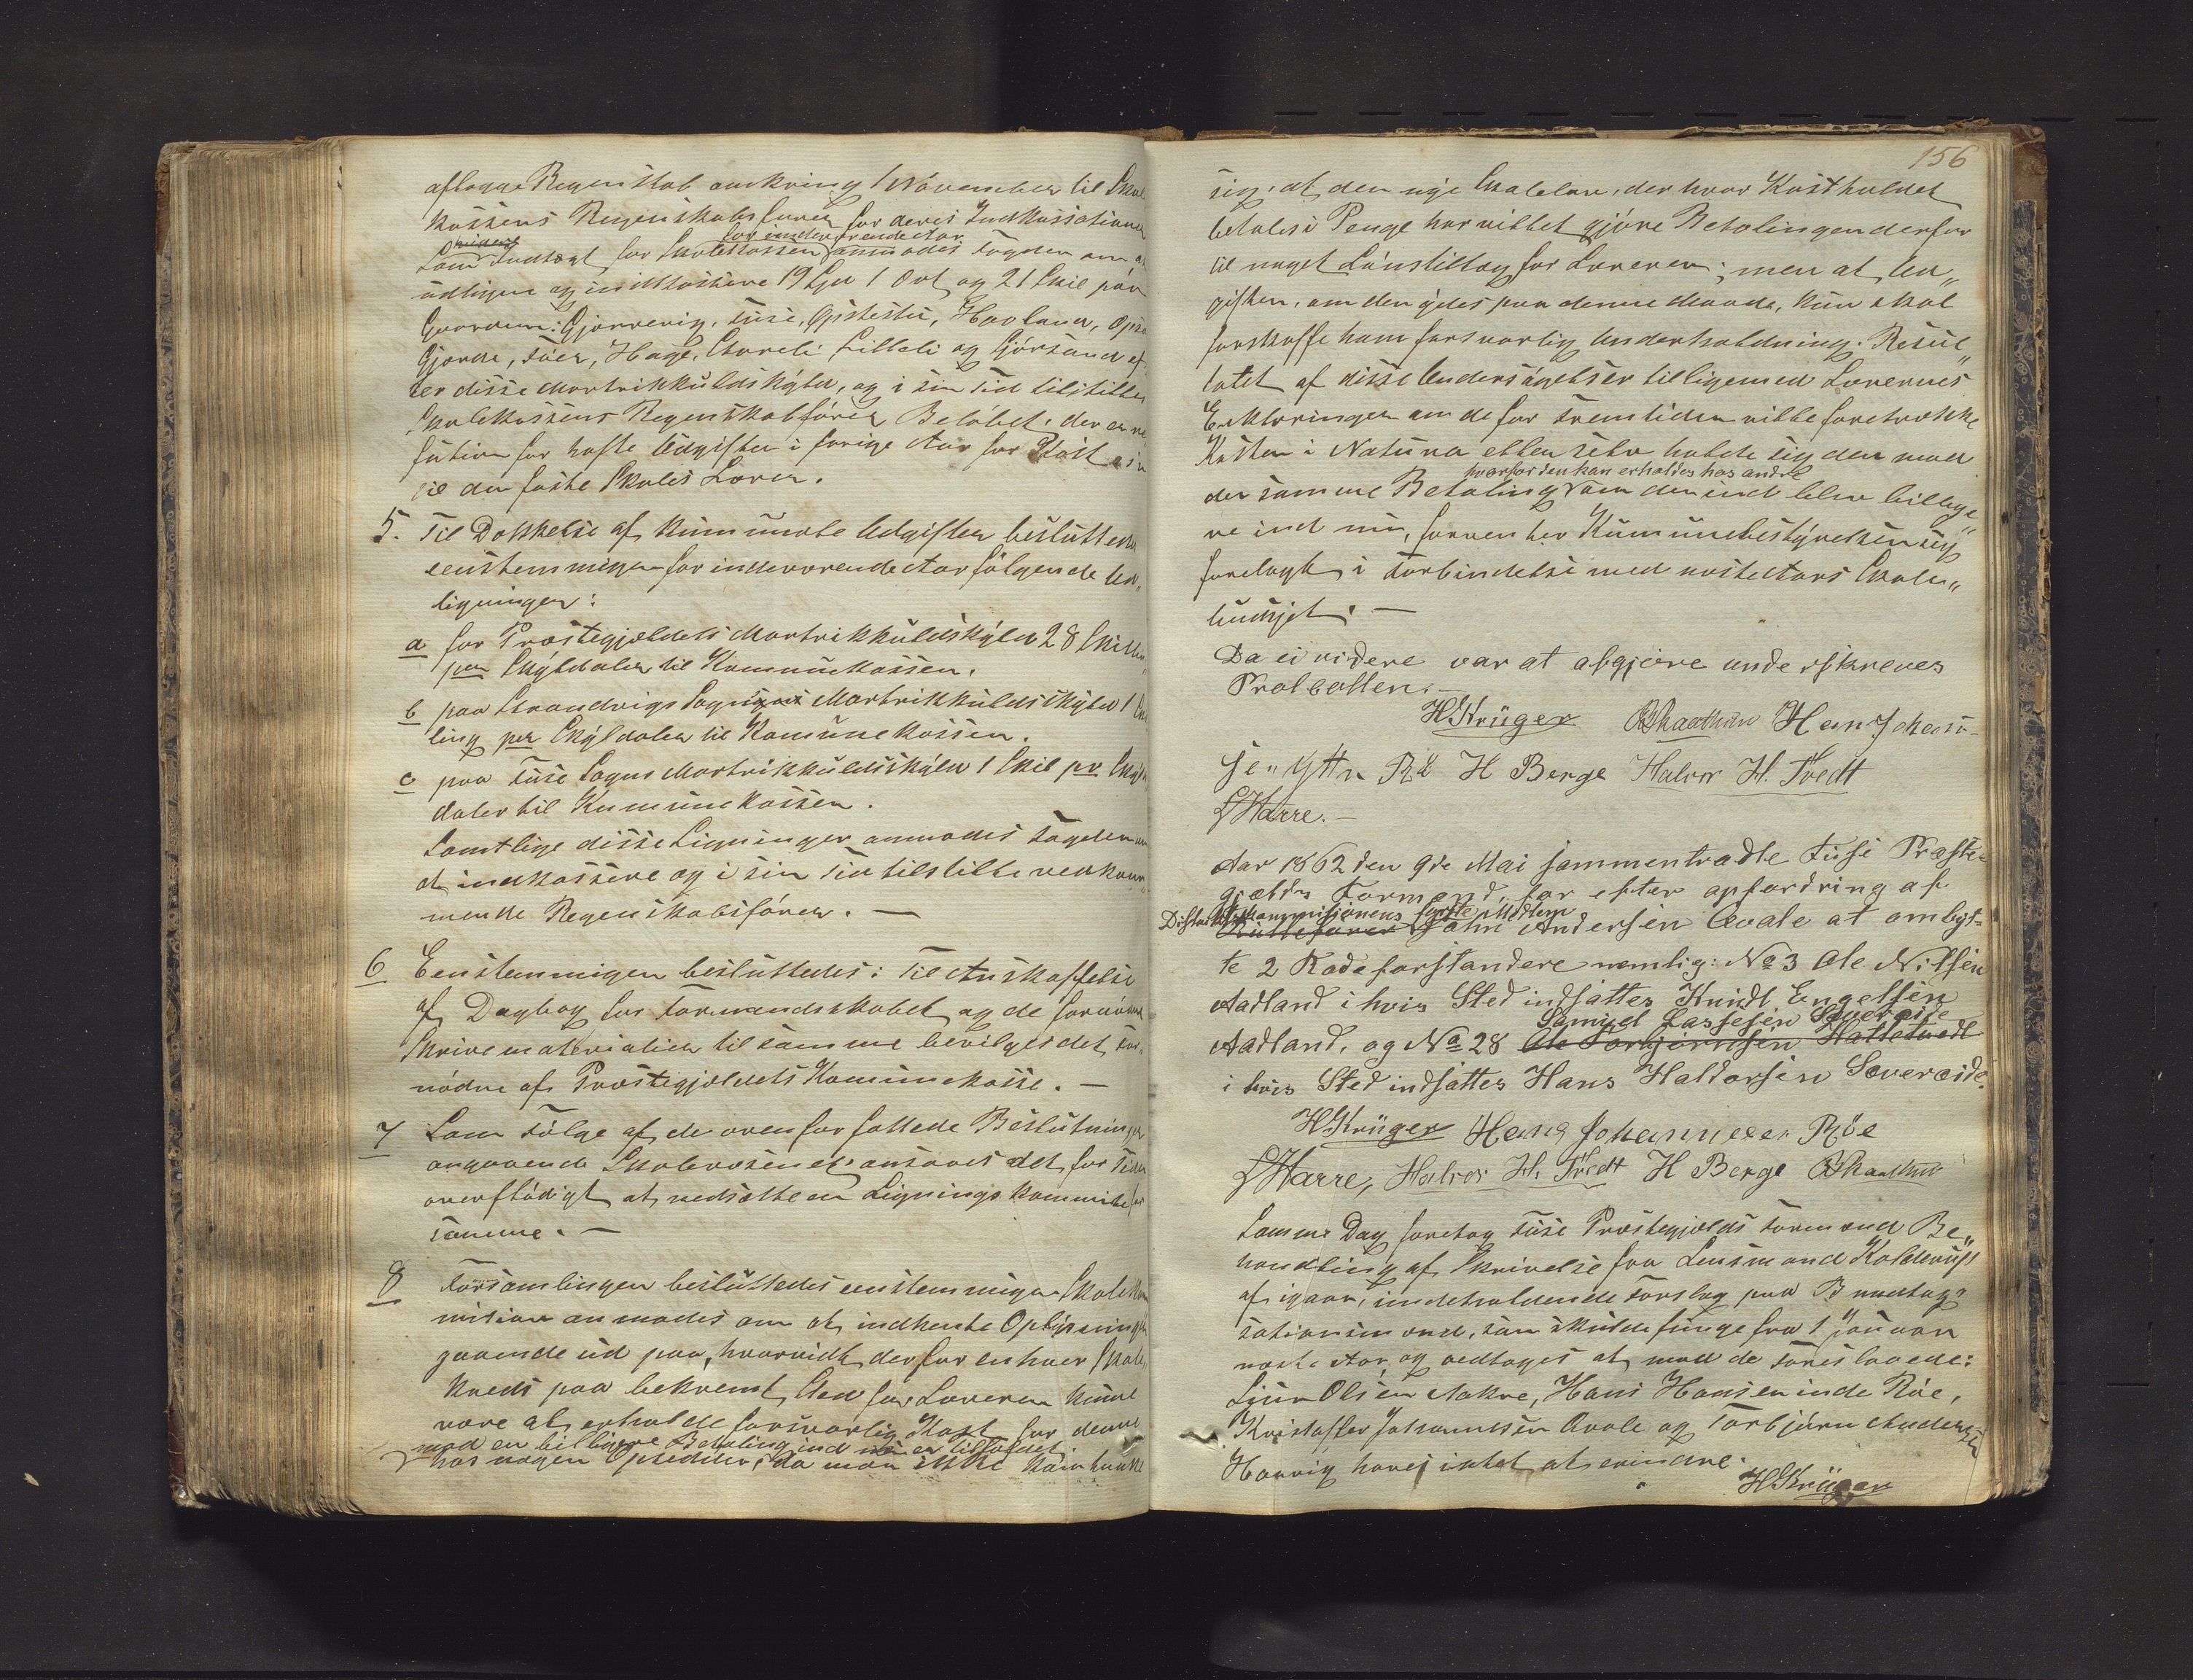 aflægge Regnskab omkring 1 November til Skole
kassens Regnskabsfører for deres Indkassationer
for inderværende Aar
Som Indtægt for Skolekassen anmodes Fogden om at
udligne og indkassere 19 Spd 1 Ort og 21 Skil paa
Gaardene: Gjønnevig, Fuse, Gjerstein, Havland, Opsa
Gjerde, Føen, Hage, Lilleli og ef
ter disse Martrikkulskyld, og i sin Tid tilstille
Skolekassens Regnskabsfører Beløbet, der er re
fution for hafte Udgifter i forrige Aar for Kost
til den faste Skoles Lærer.
5. Til Dækkelse af kummunale Udgifter besluttedes
eenstemmigen for inderværende Aar følgende Ud„
ligninger:
a for Præstegjældets Martrikkulskyld 28 Skilling
per Skyldaler til Kommunekassen.
b paa Strandvigs Sogns Martrikkulskyld 1 Skil
ling per Skyldaler til Kommunekassen.
c paa Fuse Sogns Martrikkulskyld 1 Skil pr Skyl
daler til Kummunekassen.
Samtlige disse Ligninger anmodes Fogden om
at indkassere og i sin Tid tilstille vedkom
mende Regnskabsfører. —
6 Eenstemmigen besluttedes: Til Anskaffelse
af Dagbog for Formandskabet og de fornødne
Skrivematerialier til samme bevilges det for
nødne af Præstegjældets Kommunekasse. —
7 Som Følge af de ovenfor fattede Beslutninger
angaaende Skolevæsenet ansaaes det for Tiden
overflødigt at nedsætte en Ligningskommite for
samme. —
8 Forsamlingen besluttedes eenstemmigen Skolekom
mision anmodes om at indhente Oplysninger
gaaende ud paa, hvorvidt der for enhver Skole
kreds paa bekvemt Sted for Læreren kunne
være at erholde forsvarlig Kost for denne
mod en billigere Betaling end nu er tilfældet
hos nogen Opsidder, da man ikke kan tænke
156
sig, at den nye Skolelov, der hvor Kostholdet
betales i Penge har villet gjøre Betalingen derfor
til noget Lønstillæg for Læreren; men at Ud„
giften, om den ydes paa denne Maade, kun skal
forskaffe ham forsvarlig Underholdning. Resul„
tatet af disse Undersøgelser tilligemed Lærernes
Erklæringer om de for Fremtiden ville foretrække
Kosten i Natura eller selv holde sig den mod
hvorfor den kan erholdes hos andre
den samme Betaling om den end blev billige„
re end nu, forventer Kummunebestyrelsen sig
forelagt i Forbindelse med næste Aars Skole„
budsjet. —
Da ei videre var at afgjøre underskreves
Protocollen. —
HKrüger Hans Johann-
H Berge Halvor H. Tvedt
LHarre. —
Aar 1862 den 9de Mai sammentraadte Fuse Præste-
gjælds Formænd, for efter opfordring af
Distriktskommisionens faste Medlem
John Andersen Qvale at ombyt-
te 2 Rodeforstandere nemlig: No 3 Ole Nilsen
Aadland i hvis Sted indsættes Knudt Engelsen
Samuel Lassesen Sævereide
Aadland, og No 28 Ole Torbjørnsen Hatletvedt
i hvis Sted indsættes Hans Haldorsen Sævereide.
HKrüger Hans Johannesen Røe
LHarre, Halvor H. Tvedt H Berge
Samme Dag foretog Fuse Præstegjælds Formænd Be„
handling af Skrivelse fra Lensmand Kolderup
af igaar, indeholdende Forslag paa
sationsmænd, som skulde fungere fra 1 Januar
næste Aar og vedtoges at mod de Foreslaaede:
Sjur Olsen Aakre, Hans Hansen inde Røe,
Kristoffer Johannessen Qvale og Torbjørn Andersen
Haavig haves intet at erindre.
HKrüger